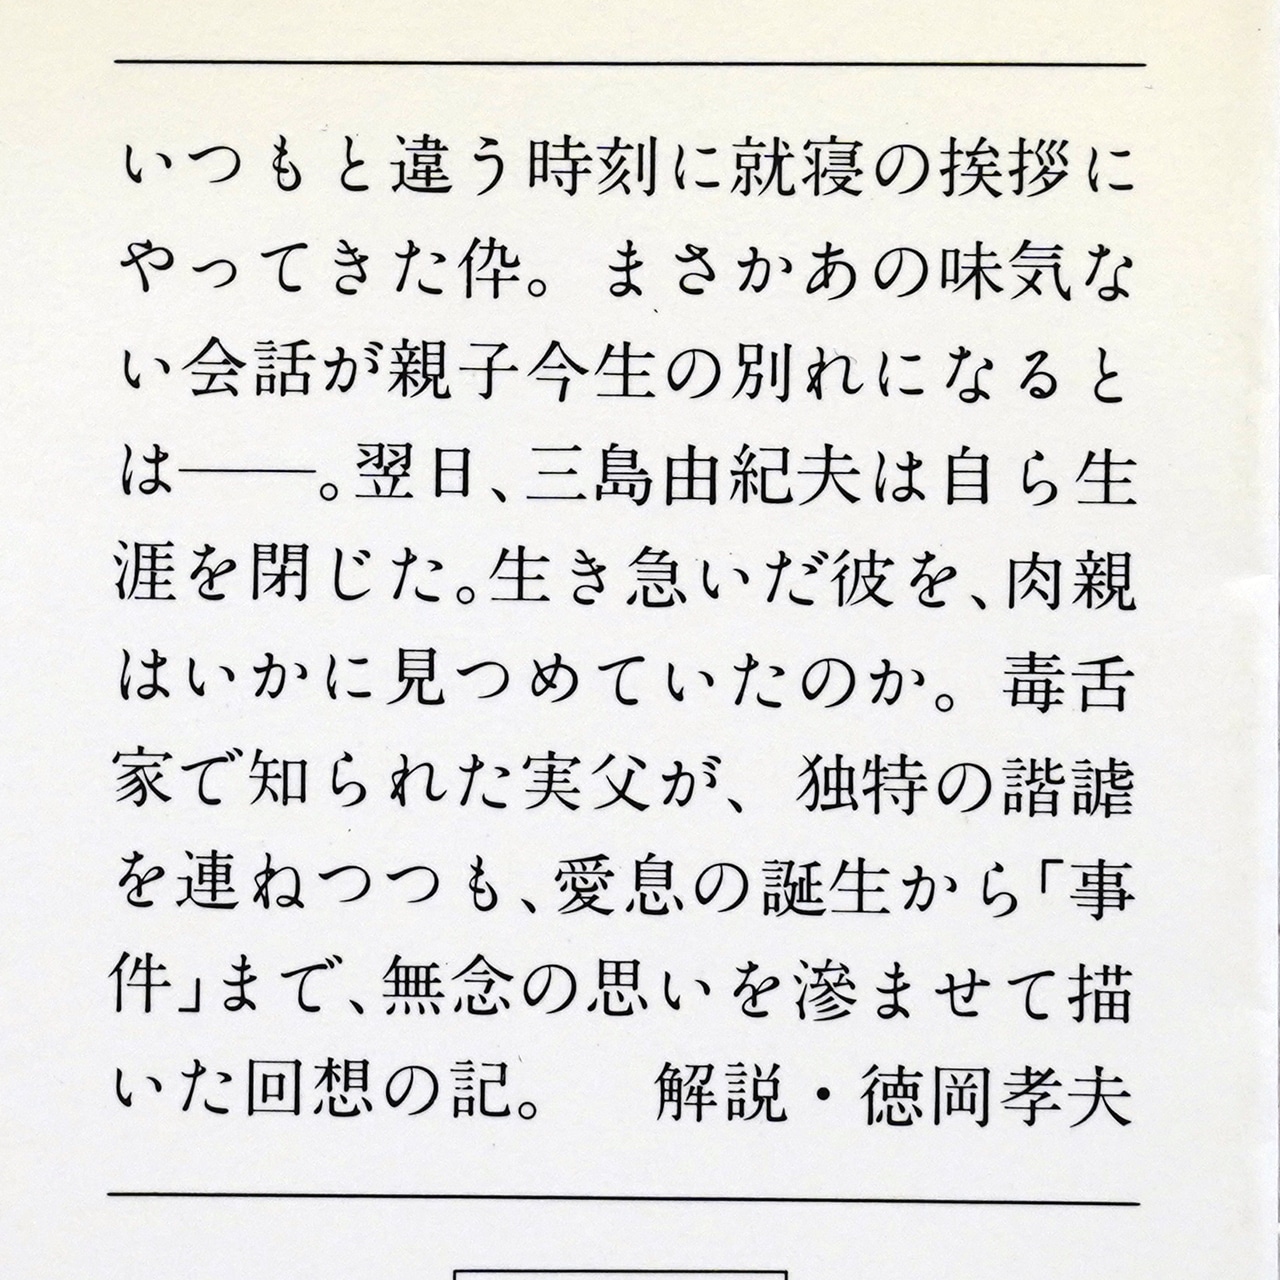 いつもと違う時刻に就寝の挨拶に
やってきた伜。まさかあの味気な
い会話が親子今生の別れになると
は――。翌日、三島由紀夫は自ら生
涯を閉じた。生き急いだ彼を、肉親
はいかに見つめていたのか。毒舌
家で知られた実父が、独特の諧謔
を連ねつつも、愛息の誕生から「事
件」まで、無念の思いを滲ませて描
いた回想の記。　解説・徳岡孝夫